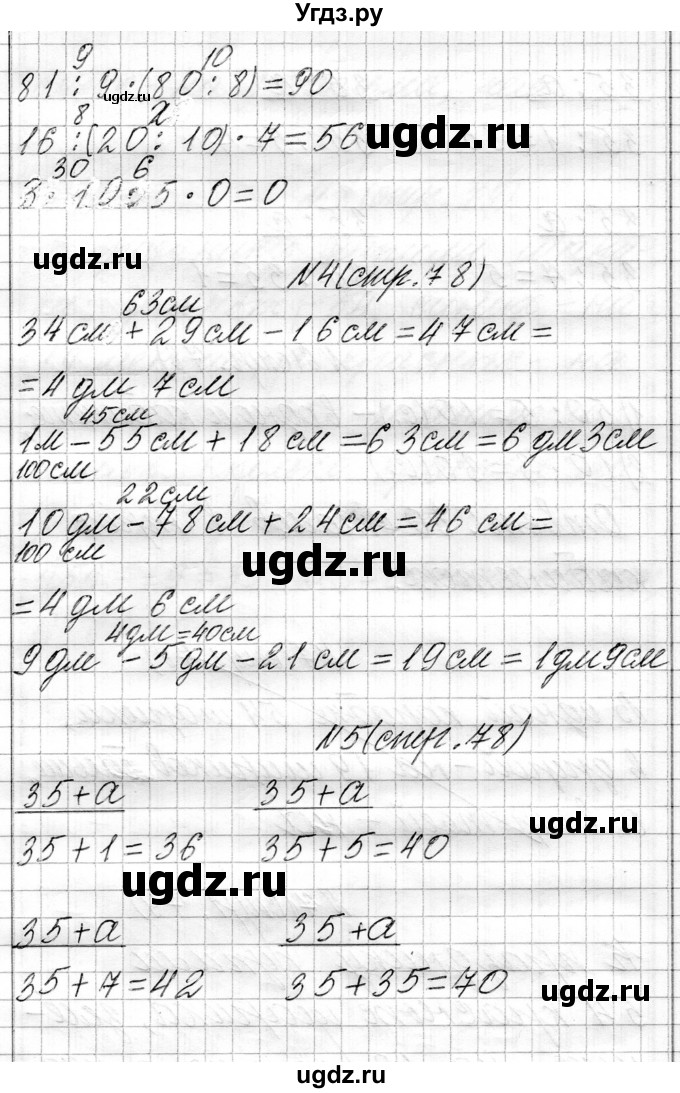 Угдз.ру
9 10
81 : 9 · (80 : 8) = 90
8 2
16 : (20 : 10) · 7 = 56
30 6
3 · 10 : 5 · 0 = 0
№4 (стр. 78)
63 см
34 см + 29 см − 16 см = 47 см =
= 4 дм 7 см
45 см
1 м − 55 см + 18 см = 63 см = 6 дм 3 см
100 см
22 см
10 дм − 78 см + 24 см = 46 см =
100 см
= 4 дм 6 см
4 дм = 40 см
9 дм − 5 дм − 21 см = 19 см = 1 дм 9 см
№5 (стр. 78)
35 + а 35 + а
35 + 1 = 36 35 + 5 = 40
35 + а 35 + а
35 + 7 = 42 35 + 35 = 70
ugdz.ru
ugdz.ru
ugdz.ru
ugdz.ru
ugdz.ru
ugdz.ru
ugdz.ru
ugdz.ru